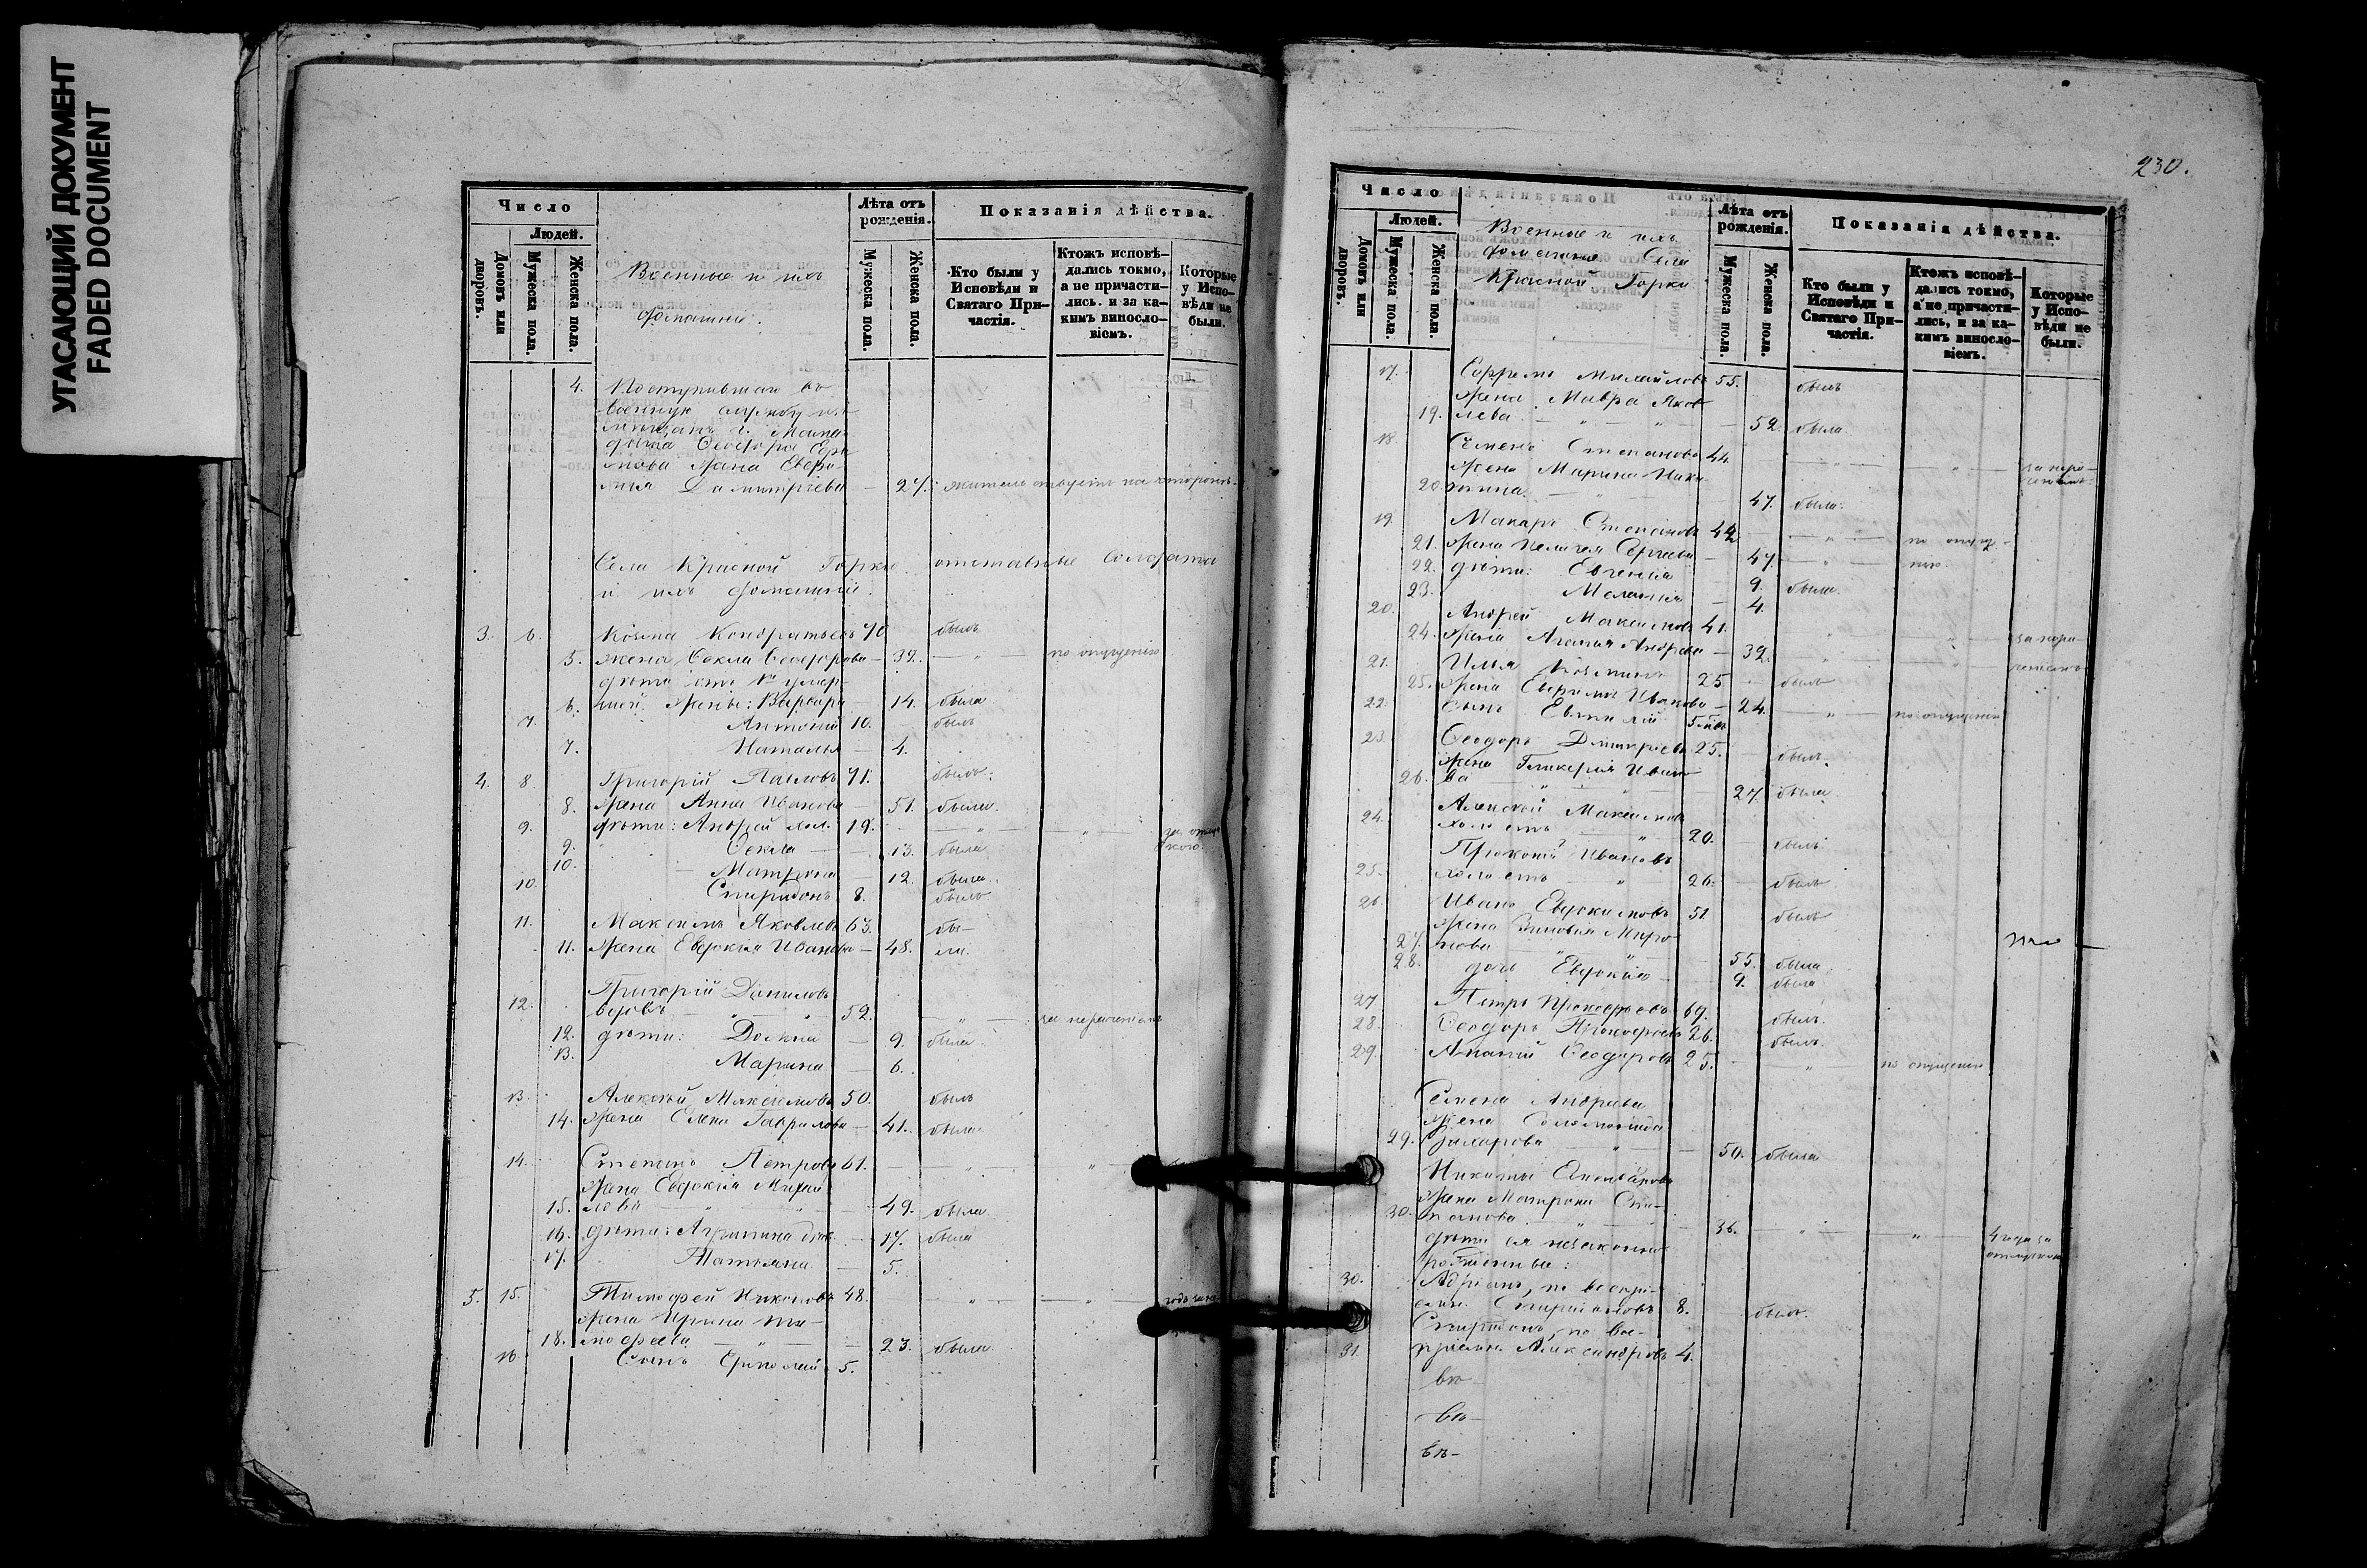 УГАСАЮЩИЙ ДОКУМЕНТ
FADED DOCUMENT
Число
Людей.
Домовъ или дворовъ.
Мужеска пола.
Женска пола.
Военные и ихъ
домашніе.
Лѣта отъ рожденія.
Мужеска пола.
Женска пола.
Показанія дѣйства.
Кто были у Исповѣди и Святаго При-частія.
Ктожъ исповѣ-дались токмо, а не причасти-лись. и за ка-кимъ винословіемъ.
Которые у Испо-вѣди не были.
4. Поступившаго въ
военную службу изъ
Ѳеодора Ефи-
мова жена
Димитріева — 27.
Села Красной Горки отставные Солдаты
и ихъ домашніе.
3. 6. Козма Кондратьевъ 70 былъ
5. жена Ѳекла Ѳеодорова — 39. — " — по опущенію
дѣти отъ умер-
6. шей жены: Варвара 14. была
7. Антоній 10. былъ
7. Наталья — 4.
4. 8 Григорій Павловъ 71. былъ.
8. жена Анна Иванова — 51. была.
9. дѣти: Андрей хол. 19. — " — " — за отлуч-
кою.
9. Ѳекла — 13. была
10. Матрона 12. была.
10. Спиридонъ 8. былъ
11. Максимъ Яковлевъ 63. бы-
11. жена Евдокія Иванова — 48. ли.
Григорій Даниловъ
12. вдовъ — " — " 52. — " — за нераченіемъ
12. дѣти: — 9. была.
13. Марина — 6.
13. Алексѣй Максимовъ 50. былъ
14. жена Елена Гаврилова — 41. была
14. Степанъ Петровъ 61. — " — "
жена Евдокія Михай-
15. лова — " — " — 49. была
16. дѣти: Агрипина — 17. была
17. Татьяна 5.
5. 15. Тимофей Никоновъ 48. — " — " —
жена Ирина Ти-
18. мофеева — " — 23. была.
16. Сынъ Ермолай 5.
230.
Число
Людей.
Домовъ или дворовъ.
Мужеска пола.
Женска пола.
Военные и ихъ
домашніе Села
Красной Горки
Лѣта отъ рожденія.
Мужеска пола.
Женска пола.
Показанія дѣйства.
Кто были у Исповѣди и Святаго При-частія.
Ктожъ исповѣ-дались токмо, а не причасти-лись, и за ка-кимъ винословіемъ.
Которые у Испо-вѣди не были.
17. Ефремъ Михайловъ 55. былъ
жена Мавра Яков-
19. лева — " — " — 52. была
18. Семенъ Степановъ 44. — " — " — за нера-
ченіемъ.
жена Марина Ники-
20. тина. — " 47. была.
19. Макаръ Степановъ 42 — " — по опущ-
21. жена Пелагея Сергеева — 47. — " нію.
22. дѣти: Евгенія 9. была.
23. Меланія — 4.
20. Андрей Максимовъ 41. " — " — за нера-
24. жена Агафья Андреева — 39. " — " ченіемъ
21. Илья Козминъ 25. былъ
25. жена Ивановa — 24. — " — по опущенію
22. Сынъ Евѳимій
23. Ѳеодоръ Димитріевъ 25. былъ.
жена Гликерія Ивано-
26. ва " " — 27. была.
24. Алексѣй Максимовъ
холостъ — " 20. былъ
25. Прокопій Ивановъ
холостъ — " 26. былъ
26. Иванъ Евдокимовъ 51 былъ
жена Зиновія Миро-
27. нова — " — " — 55. была.
28. дочь Евдокія — 9. была
27. Петръ Прокофьевъ 69. былъ.
28. Ѳеодоръ Прокофьевъ 26. былъ.
29 Ананій Ѳеодоровъ 25. — " — по опущенію
Семена Андреева
жена Соломонида
29. Захарова — " — 50. была
Никиты
жена Матрона Сте-
30. панова — " — 36. — " — " — 4 года за
отлучкою
дѣти ея незаконно
рожденные:
30. Адріанъ, по воспрі-
емн. 8. былъ.
Спиридонъ, по вос-
31. пріемн. Александровъ 4.